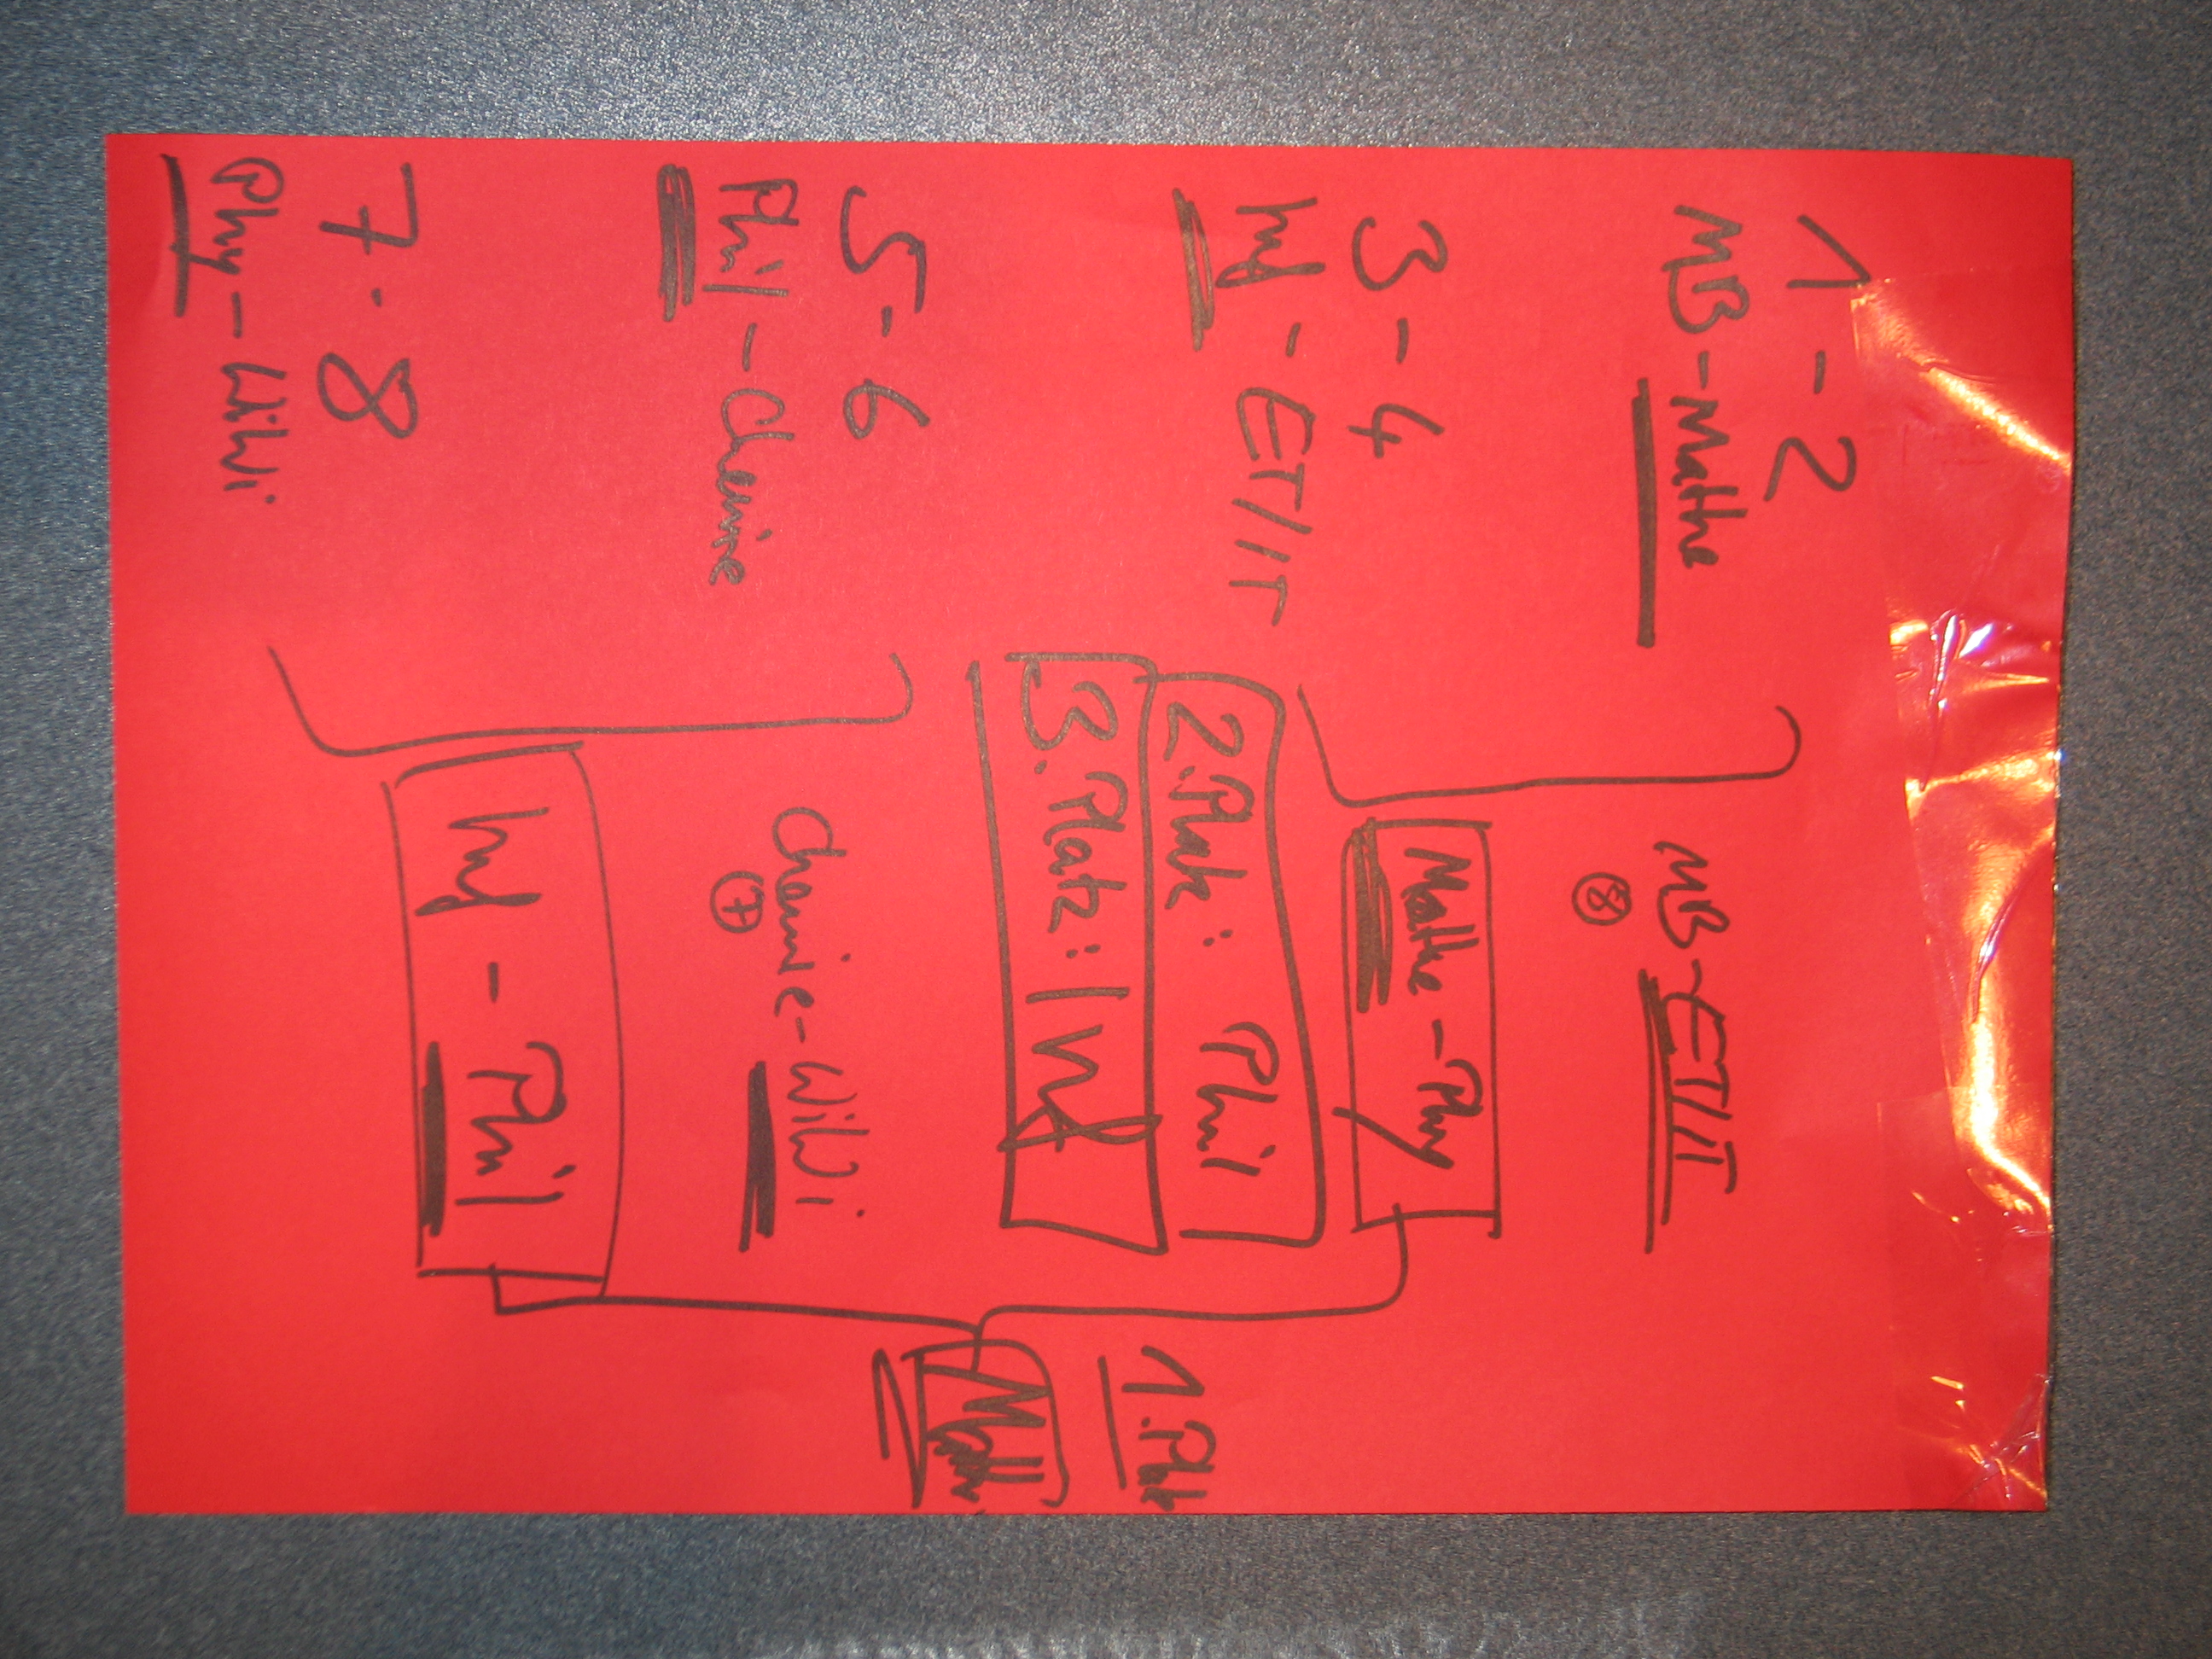 1-2
MB-Mathe
3-4
Inf - ET/IT
5-6
Phil-Chemie
7-8
Phy-WiWi
MB-ET/IT
8
Mathe-Phy
2.Platz: Phil
3.Platz: Inf
Chemie-WiWi
7
Inf - Phil
1.Platz
Mathe